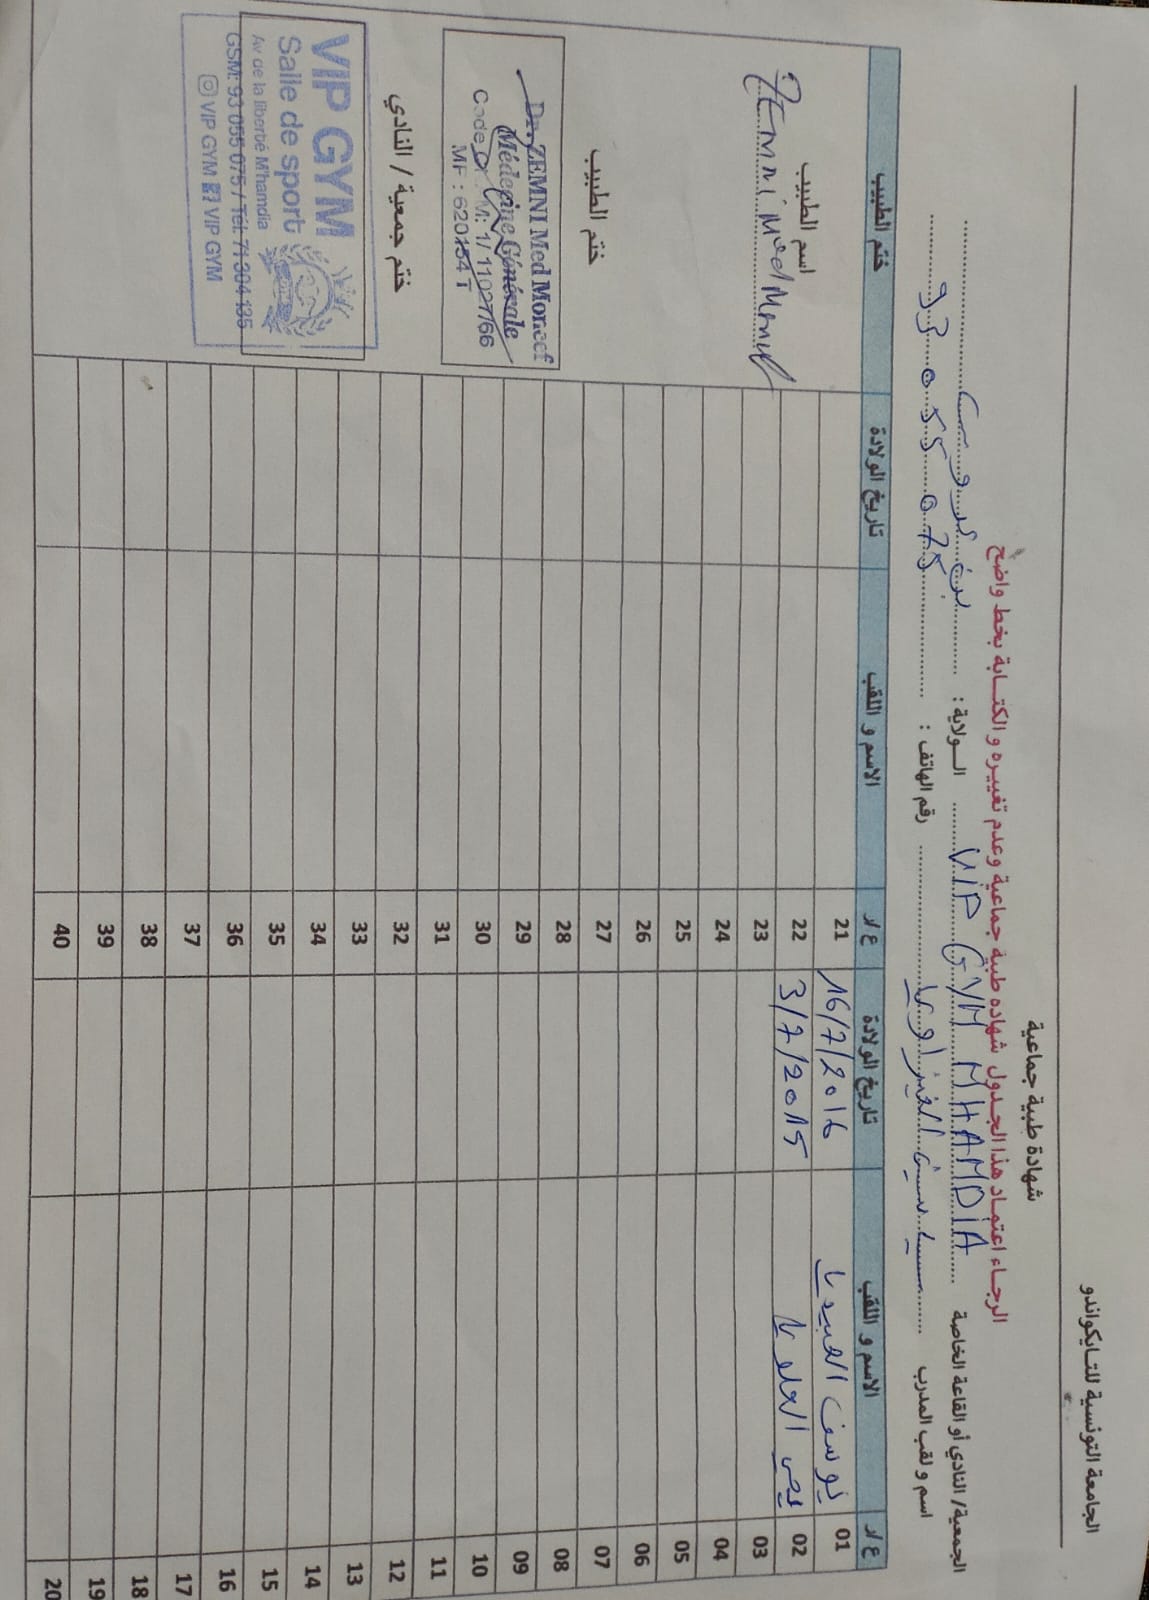 الجامعة التونسية للتايكواندو
شهادة طبية جماعية
الرجاء اعتماد هذا الجدول شهاده طبية جماعية وعدم تغييره و الكتابة بخط واضح
الجمعية/ النادي أو القاعة الخاصة ViP GYM MHAMDiA الولاية : بن عروس
اسم و لقب المدرب رقم الهاتف : 93 055 075
ع/ر الاسم و اللقب تاريخ الولادة ع/ر الاسم و اللقب تاريخ الولادة ختم الطبيب
01 يوسف العبيدي 16/7/2016 21
02 يحي العلوي 3/7/2015 22
03 23
04 24
05 25
06 26
07 27
08 28
09 29
10 30
11 31
12 32
13 33
14 34
15 35
16 36
17 37
18 38
19 39
20 40
اسم الطبيب
Zemni Med Moncef
ختم الطبيب
Dr. ZEMNI Med Moncef
Médecine Générale
1/11027/66
MF : 620154 T
ختم جمعية / النادي
VIP GYM
Salle de sport
Av de la liberté M'hamdia
GSM: 93 055 075 / Tél: 71 304 135
VIP GYM VIP GYM